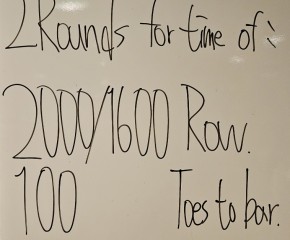 2 Rounds for time of:
2000/1600 Row.
100 Toes to bar.